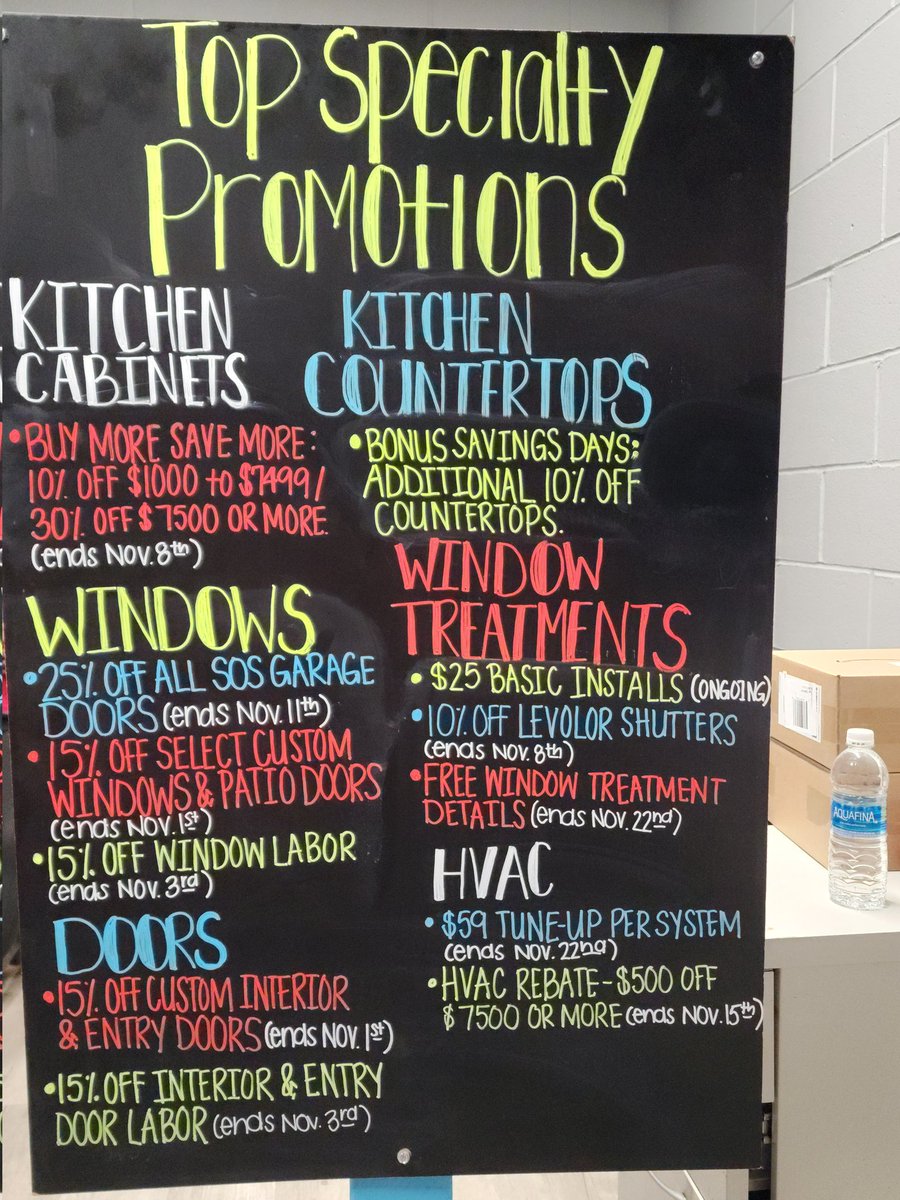 Top Specialty
Promotions
KITCHEN
CABINETS
• BUY MORE SAVE MORE:
10% OFF $1000 to $7499/
30% OFF $7500 OR MORE.
(ends Nov. 8th)
WINDOWS
• 25% OFF ALL SOS GARAGE
DOORS (ends Nov. 11th)
• 15% OFF SELECT CUSTOM
WINDOWS & PATIO DOORS
(ends Nov. 1st)
• 15% OFF WINDOW LABOR
(ends Nov. 3rd)
DOORS
• 15% OFF CUSTOM INTERIOR
& ENTRY DOORS (ends Nov. 1st)
• 15% OFF INTERIOR & ENTRY
DOOR LABOR (ends Nov. 3rd)
KITCHEN
COUNTERTOPS
• BONUS SAVINGS DAYS:
ADDITIONAL 10% OFF
COUNTERTOPS.
WINDOW
TREATMENTS
• $25 BASIC INSTALLS (ONGOING)
• 10% OFF LEVOLOR SHUTTERS
(ends Nov. 8th)
• FREE WINDOW TREATMENT
DETAILS (ends Nov. 22nd)
HVAC
• $59 TUNE-UP PER SYSTEM
(ends Nov. 22nd)
• HVAC REBATE - $500 OFF
$7500 OR MORE (ends Nov. 15th)
AQUAFINA